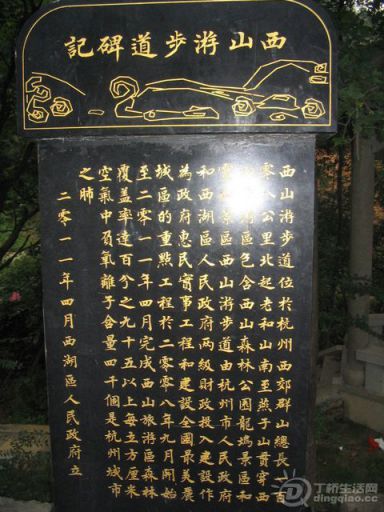 西山游步道碑記
西山游步道位於杭州西郊群山總長百
零八公里北起老和山南至燕子山貫穿西
游區包含西山森林公園龍塢景區和
景區西山游步道由杭州市人民政府
和西湖區人民政府兩級財政投入建設作
為政府惠民實事工程和建設全國最美麗
城區的重點工程於二零零八年九月開始
至二零一一年四月完成西山旅游區森林
覆蓋率達百分之九十五以上每立方厘米
空氣中負氧離子含量四千個是杭州城市
之肺
二零一一年四月西湖區人民政府立
丁桥生活网
dingqiao.cc